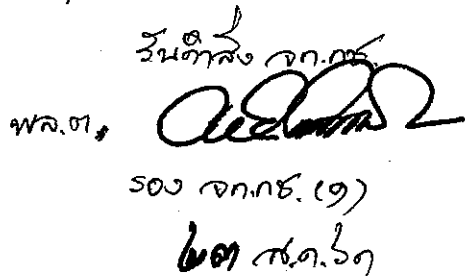 รับคำสั่ง จก.กช.
พล.ต.
รอง จก.กช. (๑)
๒๓ ส.ค. ๖๓